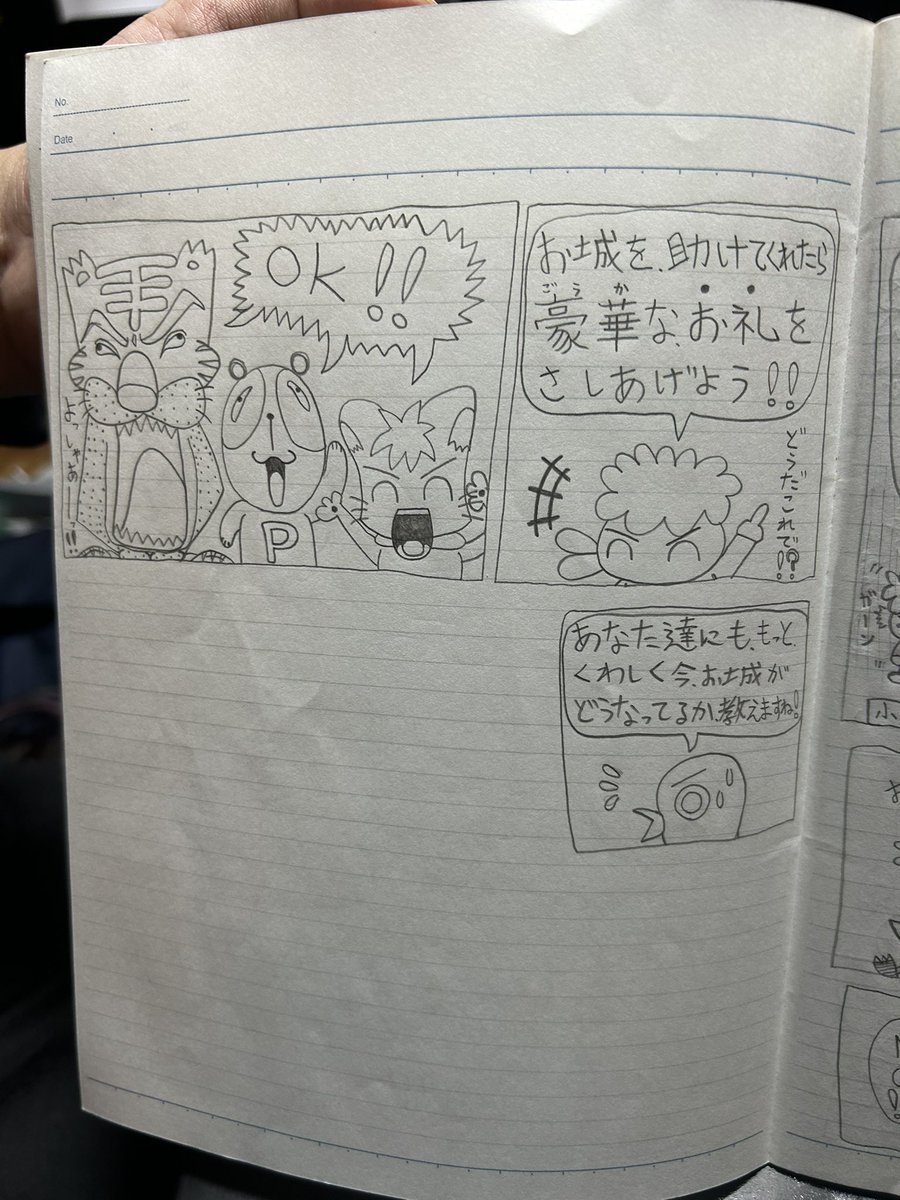 No.
Date
お城を、助けてくれたら
豪華な、お礼を
ごうか
さしあげよう!!
どうだこれで!?
OK!!
よっしゃあー!!
P
あなた達にも、もっと、
くわしく今、お城が
どうなってるか、教えますね!
ガーン
小